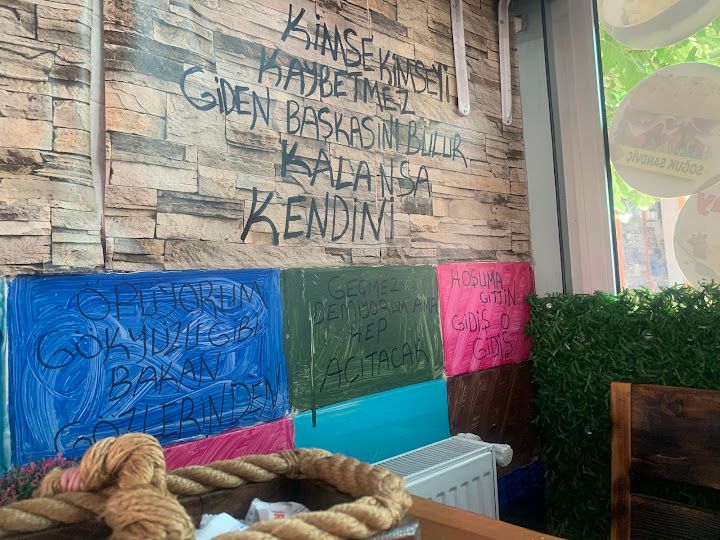 KİMSE KİMSEYİ
KAYBETMEZ
GİDEN BAŞKASINI BULUR
KALANSA
KENDİNİ
ÖPÜYORUM
GÖKYÜZÜ GİBİ
BAKAN
GÖZLERİNDEN
GEÇMEZ
DEMİYORUM AMA
HEP
ACITACAK
HOŞUMA
GİTTİN
GİDİŞ O
GİDİŞ
SOĞUK SANDVİÇ